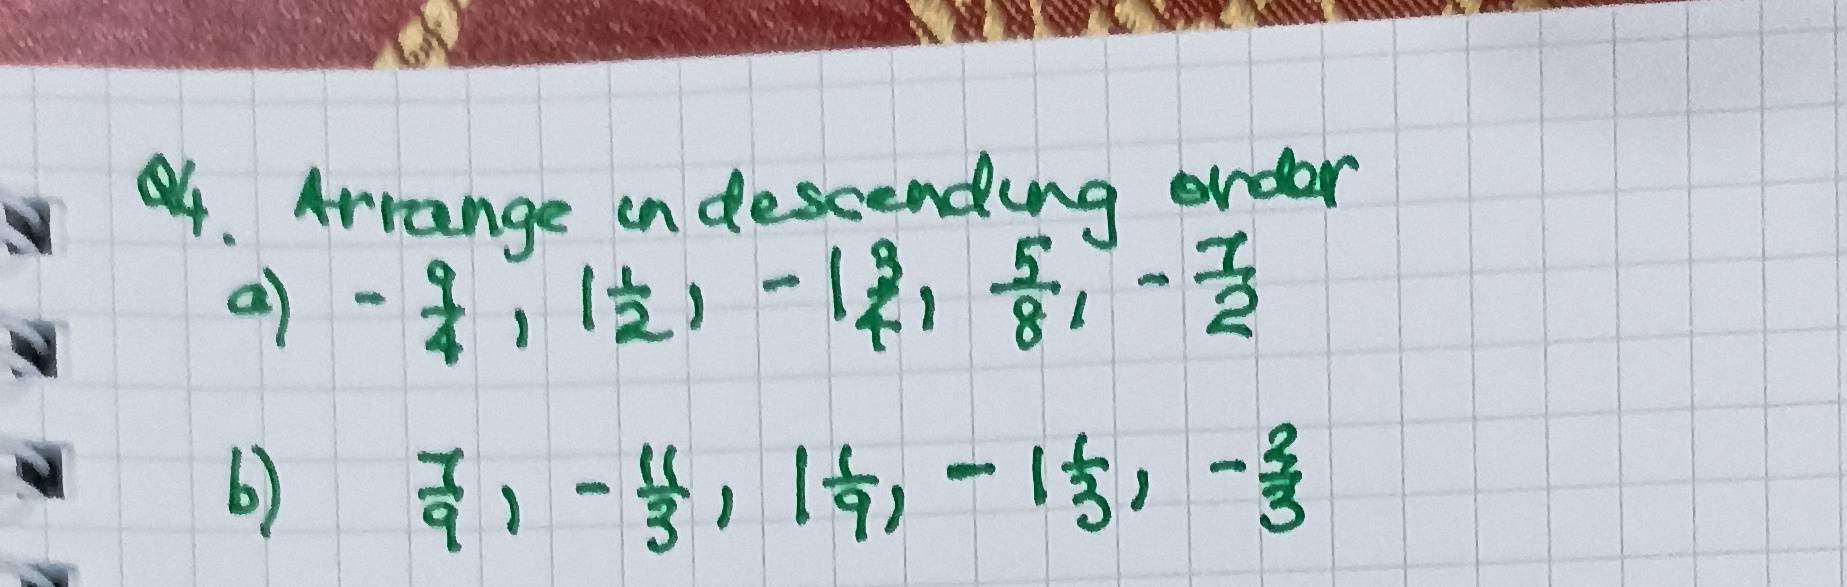 Q4. Arrange in descending order
a) - 9/4, 1 1/2, - 1 3/4, 5/8, - 7/2
b) 7/9, - 11/3, 1 1/9, - 1 1/3, - 2/3